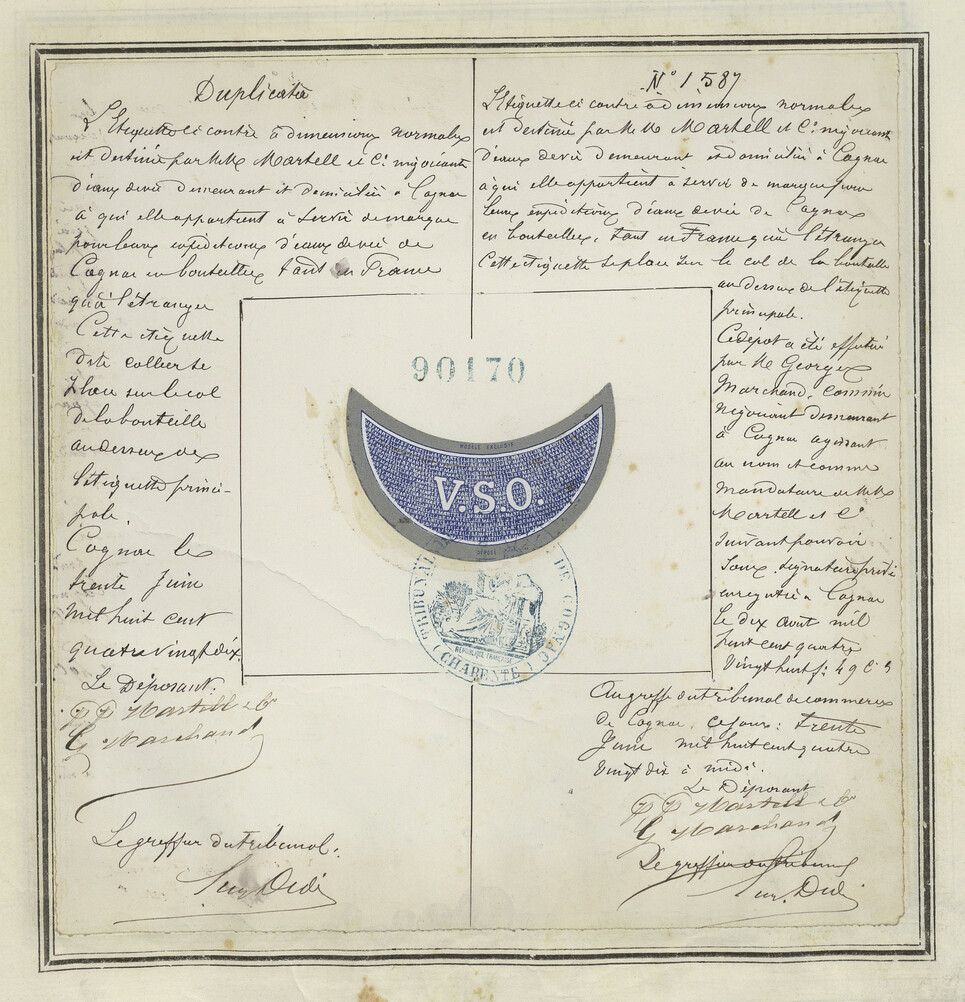 Duplicata
L'Etiquette ci contre à dimensions normales
est destinée par M.M. Martell et Cie négociants
d'eaux de vie demeurant et domiciliés à Cognac
à qui elle appartient à servir de marque
pour leurs expéditions d'eaux de vie de
Cognac en bouteilles tant en France
qu'à l'étranger
Cette étiquette
dite collier se
place sur le col
de la bouteille
au dessus de
l'étiquette princi-
pale.
Cognac le
trente Juin
mil huit cent
quatre vingt dix.
Le Déposant.
PP Martell & Co
G Marchand
Le greffier du tribunal.
No 1587
L'Etiquette ci contre à dimensions normales
est destinée par M.M. Martell et Cie négociants
d'eaux de vie demeurant et domiciliés à Cognac
à qui elle appartient à servir de marque pour
leurs expéditions d'eaux de vie de Cognac
en bouteilles, tant en France qu'à l'étranger
Cette étiquette se place sur le col de la bouteille
au dessus de l'étiquette
principale.
Ce dépôt a été effectué
par M. Georges
Marchand, commis
négociant demeurant
à Cognac agissant
au nom et comme
mandataire de M.M.
Martell et Cie
suivant pouvoir
sous signature privée
enregistré à Cognac
le dix août mil
huit cent quatre
vingt huit fo 49 C 9
Au greffe du tribunal de commerce
de Cognac, ce jour: trente
Juin mil huit cent quatre
vingt dix à midi.
Le Déposant
PP Martell & Co
G Marchand
Le greffier du tribunal
90170
MODÈLE EXCLUSIF
V.S.O.
DÉPOSÉ
TRIBUNAL DE COGNAC
RÉPUBLIQUE FRANÇAISE
(CHARENTE)